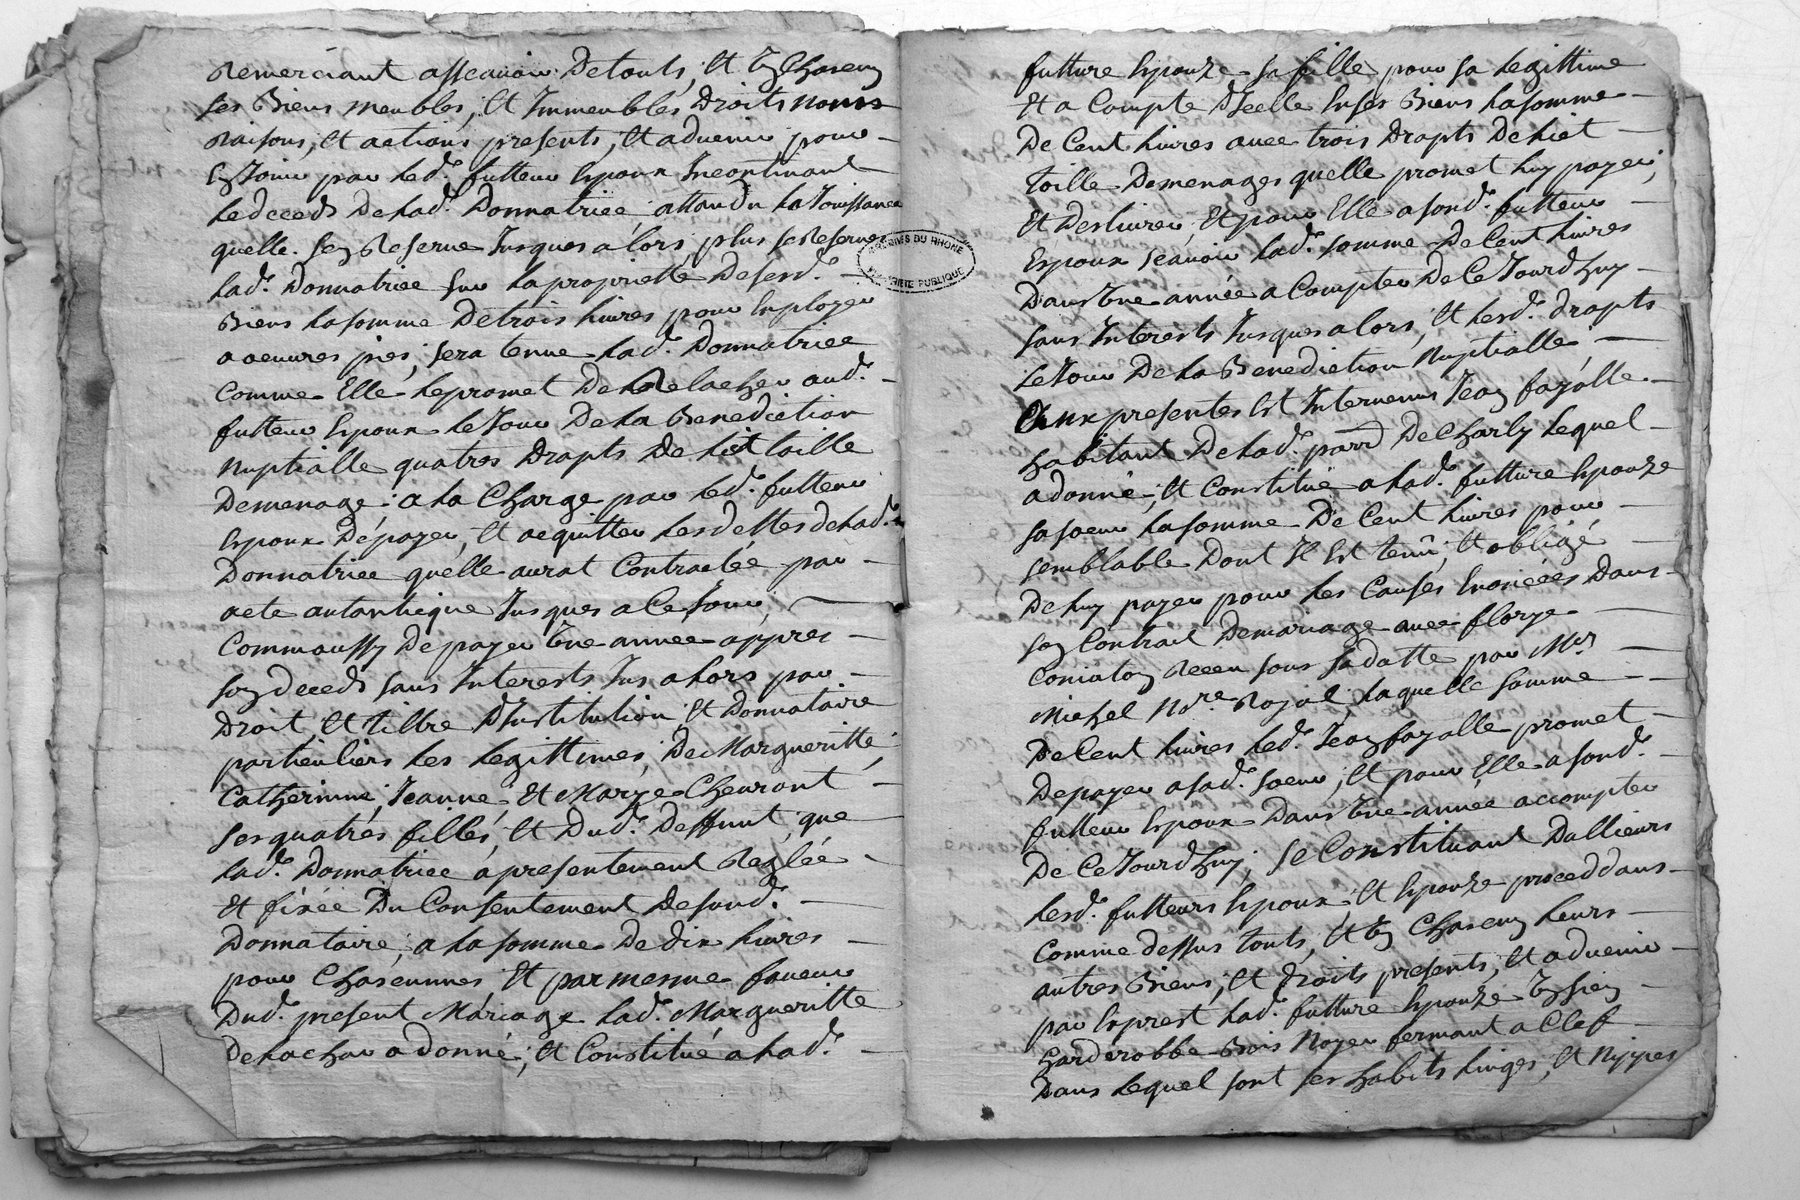 Remerciant assauoir De touts, Et Ung Chascun
ses Biens meubles, Et Immeubles Droits noms
Raisons, Et actions presents, Et aduenir pour
En Jouir par Led.^t futteur Espoux Incontinant
Le deceds De Lad.^e Donnatrice attandu La Jouissance
quelle. sen Reserue Jusques a lors, plus se Reserue
Lad.^e Donnatrice sur La proprietté De sesd.^ts
Biens La somme De trois Liures pour Employer
a oeuures pies, sera tenue Lad.^e Donnatrice
Comme Elle Le promet De Relacher aud.^t
futteur Espoux Le Jour De La Benediction
Nuptialle quatres Drapts De Liet toille
De menage; a La Charge par Led.^t futteur
Espoux De payer, Et acquitter Les dettes de Lad.^e
Donnatrice quelle aurat Contractée par
acte autantique Jusques a Ce Jour,
Comm aussy De payer Une année appres
son deceds sans Interests Jus a Lors par
Droit, Et tiltre D'Institution, Et Donnataire
particuliers Les Legittimes, De Margueritte,
Catherinne, Jeanne, Et Marye Cheuront
ses quatres filles, Et Dud.^t Deffunt, que
Lad.^e Donnatrice a presentement Reglée
Et fixée Du Consentement De sond.^t
Donnataire, a La somme De dix Liures
pour Chascunnes Et par mesme faueur
Dud.^t present Mariage Lad.^e Margueritte
De Lachau a donné, Et Constitué a Lad.^e
futture Espouze sa fille pour sa Legittime
Et a Compte D'Jcelle En ses Biens La somme
De Cent Liures auec trois Drapts De Liet
toille De menages quelle promet Luy payer,
Et Desliurer, Et pour Elle a sond.^t futteur
Espoux scauoir Lad.^e somme De Cent Liures
Dans Une année a Compter De Ce Jourd'huy
sans Interests Jusques a lors, Et Lesd.^ts drapts
Le Jour De La Benediction Nuptialle
Aux presentes Est Interuenus Jean fayolle
habitant De Lad.^e parr.^e De Charly Lequel
a donné, Et Constitué a Lad.^e futture Espouze
sa soeur La somme De Cent Liures pour
semblable Dont Il Est tenû, Et obligé
De Luy payer pour Les Causes Enoncées Dans
son Contrat De mariage auec florye
Coniaton Receu sous sa datte par M.^e
Michel No.^re Royal, Laquelle somme
De Cent Liures Led.^t Jean fayolle promet
De payer a sad.^e soeur, Et pour Elle a sond.^t
futteur Espoux Dans Une année a compter
De Ce Jourd'huy, se Constituant Dallieurs
Lesd.^ts futteurs Espoux, Et Espouze proced dans
Comme dessus touts, Et Ung Chascun Leurs
autres Biens, Et Droits presents, Et aduenir
par Exprest Lad.^e futture Espouze Ung sien
Garderobbe Bois Noyer fermant a Clef
Dans Lequel sont ses habits Linges, Et Nippes
ARCHIVES DU RHONE
PROPRIÉTÉ PUBLIQUE